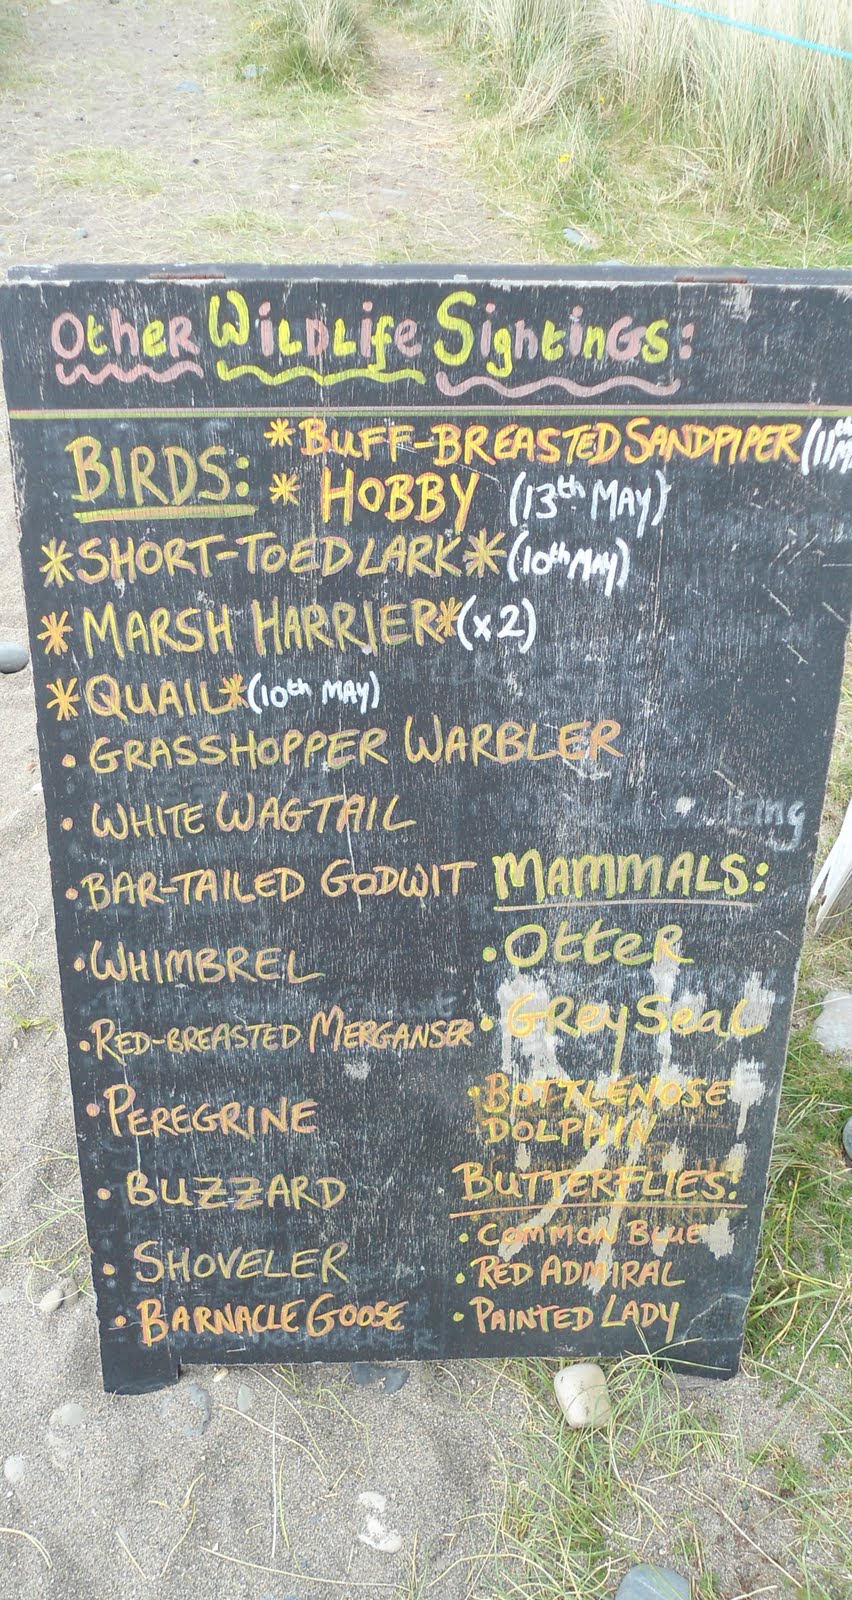 Other Wildlife Sightings:
BIRDS: * BUFF-BREASTED SANDPIPER (11th
* HOBBY (13th MAY)
* SHORT-TOED LARK * (10th MAY)
* MARSH HARRIER * (x2)
* QUAIL * (10th MAY)
• GRASSHOPPER WARBLER
• WHITE WAGTAIL
• BAR-TAILED GODWIT
• WHIMBREL
• RED-BREASTED MERGANSER
• PEREGRINE
• BUZZARD
• SHOVELER
• BARNACLE GOOSE
MAMMALS:
• Otter
• Grey Seal
• BOTTLENOSE
DOLPHIN
BUTTERFLIES:
• COMMON BLUE
• RED ADMIRAL
• PAINTED LADY